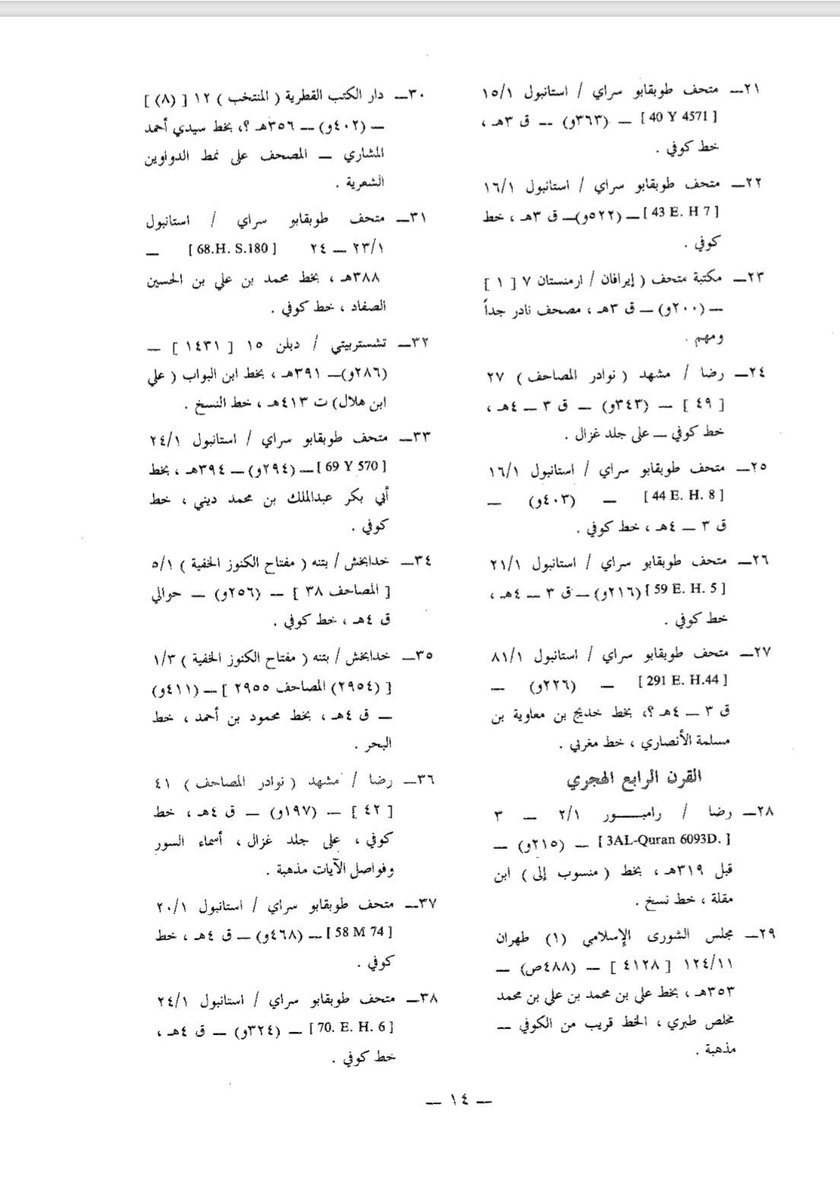 ٢١ــ متحف طوبقابو سراي / استانبول ١٥/١
[ 40 Y 4571 ] ــ (٣٦٣و) ــ ق ٣هـ ،
خط كوفي .
٢٢ــ متحف طوبقابو سراي / استانبول ١٦/١
[ 43 E. H 7 ] ــ (٥٢٢و)ــ ق ٣هـ ، خط
كوفي .
٢٣ــ مكتبة متحف ( إيرافان / ارمنستان ٧ [ ١ ]
ــ (٢٠٠و) ــ ق ٣هـ ، مصحف نادر جداً
ومهم .
٢٤ــ رضا / مشهد ( نوادر المصاحف ) ٢٧
[ ٤٩ ] ــ (٣٤٣و) ــ ق ٣ ــ ٤هـ ،
خط كوفي ــ على جلد غزال .
٢٥ــ متحف طوبقابو سراي / استانبول ١٦/١
[ 44 E. H. 8 ] ــ (٤٠٣و) ــ
ق ٣ ــ ٤هـ ، خط كوفي .
٢٦ــ متحف طوبقابو سراي / استانبول ٢١/١
[ 59 E. H. 5 ] (٢١٦و) ــ ق ٣ ــ ٤هـ ،
خط كوفي .
٢٧ــ متحف طوبقابو سراي / استانبول ٨١/١
[ 291 E. H.44 ] ــ (٢٢٦و) ــ
ق ٣ ــ ٤هـ ؟، بخط خديج بن معاوية بن
مسلمة الأنصاري ، خط مغربي .
القرن الرابع الهجري
٢٨ــ رضا / رامبـــور ٢/١ ــ ٣
[ 3AL-Quran 6093D. ] ــ (٢١٥و) ــ
قبل ٣١٩هـ ، بخط ( منسوب إلى ) ابن
مقلة ، خط نسخ .
٢٩ــ مجلس الشورى الإسلامي (١) طهران
١٢٤/١١ [ ٤١٢٨ ] ــ (٤٨٨ص) ــ
٣٥٣هـ ، بخط علي بن محمد بن علي بن محمد
مخلص طبري ، الخط قريب من الكوفي ــ
مذهبة .
٣٠ــ دار الكتب القطرية ( المنتخب ) ١٢ [ (٨) ]
ــ (٤٠٢و) ــ ٣٥٦هـ ؟، بخط سيدي أحمد
المشاري ــ المصحف على نمط الدواوين
الشعرية .
٣١ــ متحف طوبقابو سراي / استانبول
٢٣/١ ــ ٢٤ [ 68.H. S.180 ] ــ
٣٨٨هـ ، بخط محمد بن علي بن الحسين
الصفاد ، خط كوفي .
٣٢ــ تشستربيتي / دبلن ١٥ [ ١٤٣١ ] ــ
(٢٨٦و)ــ ٣٩١هـ ، بخط ابن البواب ( علي
ابن هلال) ت ٤١٣هـ ، خط النسخ .
٣٣ــ متحف طوبقابو سراي / استانبول ٢٤/١
[ 69 Y 570 ] ــ (٢٩٤و) ــ ٣٩٤هـ ، بخط
أبي بكر عبدالملك بن محمد ديني ، خط
كوفي .
٣٤ــ خدابخش / بتنه ( مفتاح الكنوز الخفية ) ٥/١
[ المصاحف ٣٨ ] ــ (٢٥٦و) ــ حوالي
ق ٤هـ ، خط كوفي .
٣٥ــ خدابخش / بتنه ( مفتاح الكنوز الخفية ) ١/٣
[ (٢٩٥٤) المصاحف ٢٩٥٥ ] ــ (٤١١و)
ــ ق ٤هـ ، بخط محمود بن أحمد ، خط
البحر .
٣٦ــ رضا / مشهد ( نوادر المصاحف ) ٤١
[ ٤٢ ] ــ (١٩٧و) ــ ق ٤هـ ، خط
كوفي ، على جلد غزال ، أسماء السور
وفواصل الآيات مذهبة .
٣٧ــ متحف طوبقابو سراي / استانبول ٢٠/١
[ 58 M 74 ] ــ (٤٦٨و) ــ ق ٤هـ ، خط
كوفي .
٣٨ــ متحف طوبقابو سراي / استانبول ٢٤/١
[ 70. E. H. 6 ] ــ (٣٢٤و) ــ ق ٤هـ ،
خط كوفي .
ــ ١٤ ــ